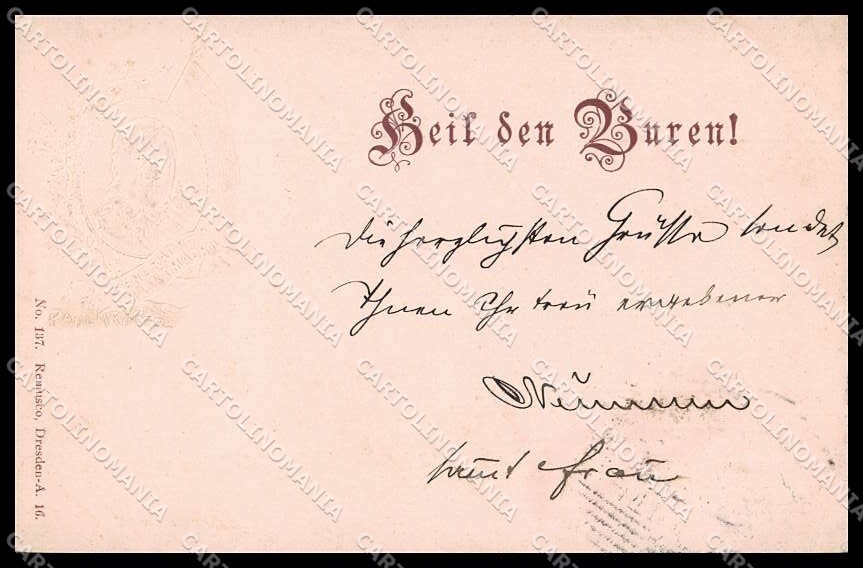 Heil den Buren!
Die herzlichsten Grüsse sendet
Ihnen Ihr treu ergebener
Neumann
samt Frau
No. 137. Remusco, Dresden-A. 16.
CARTOLINOMANIA